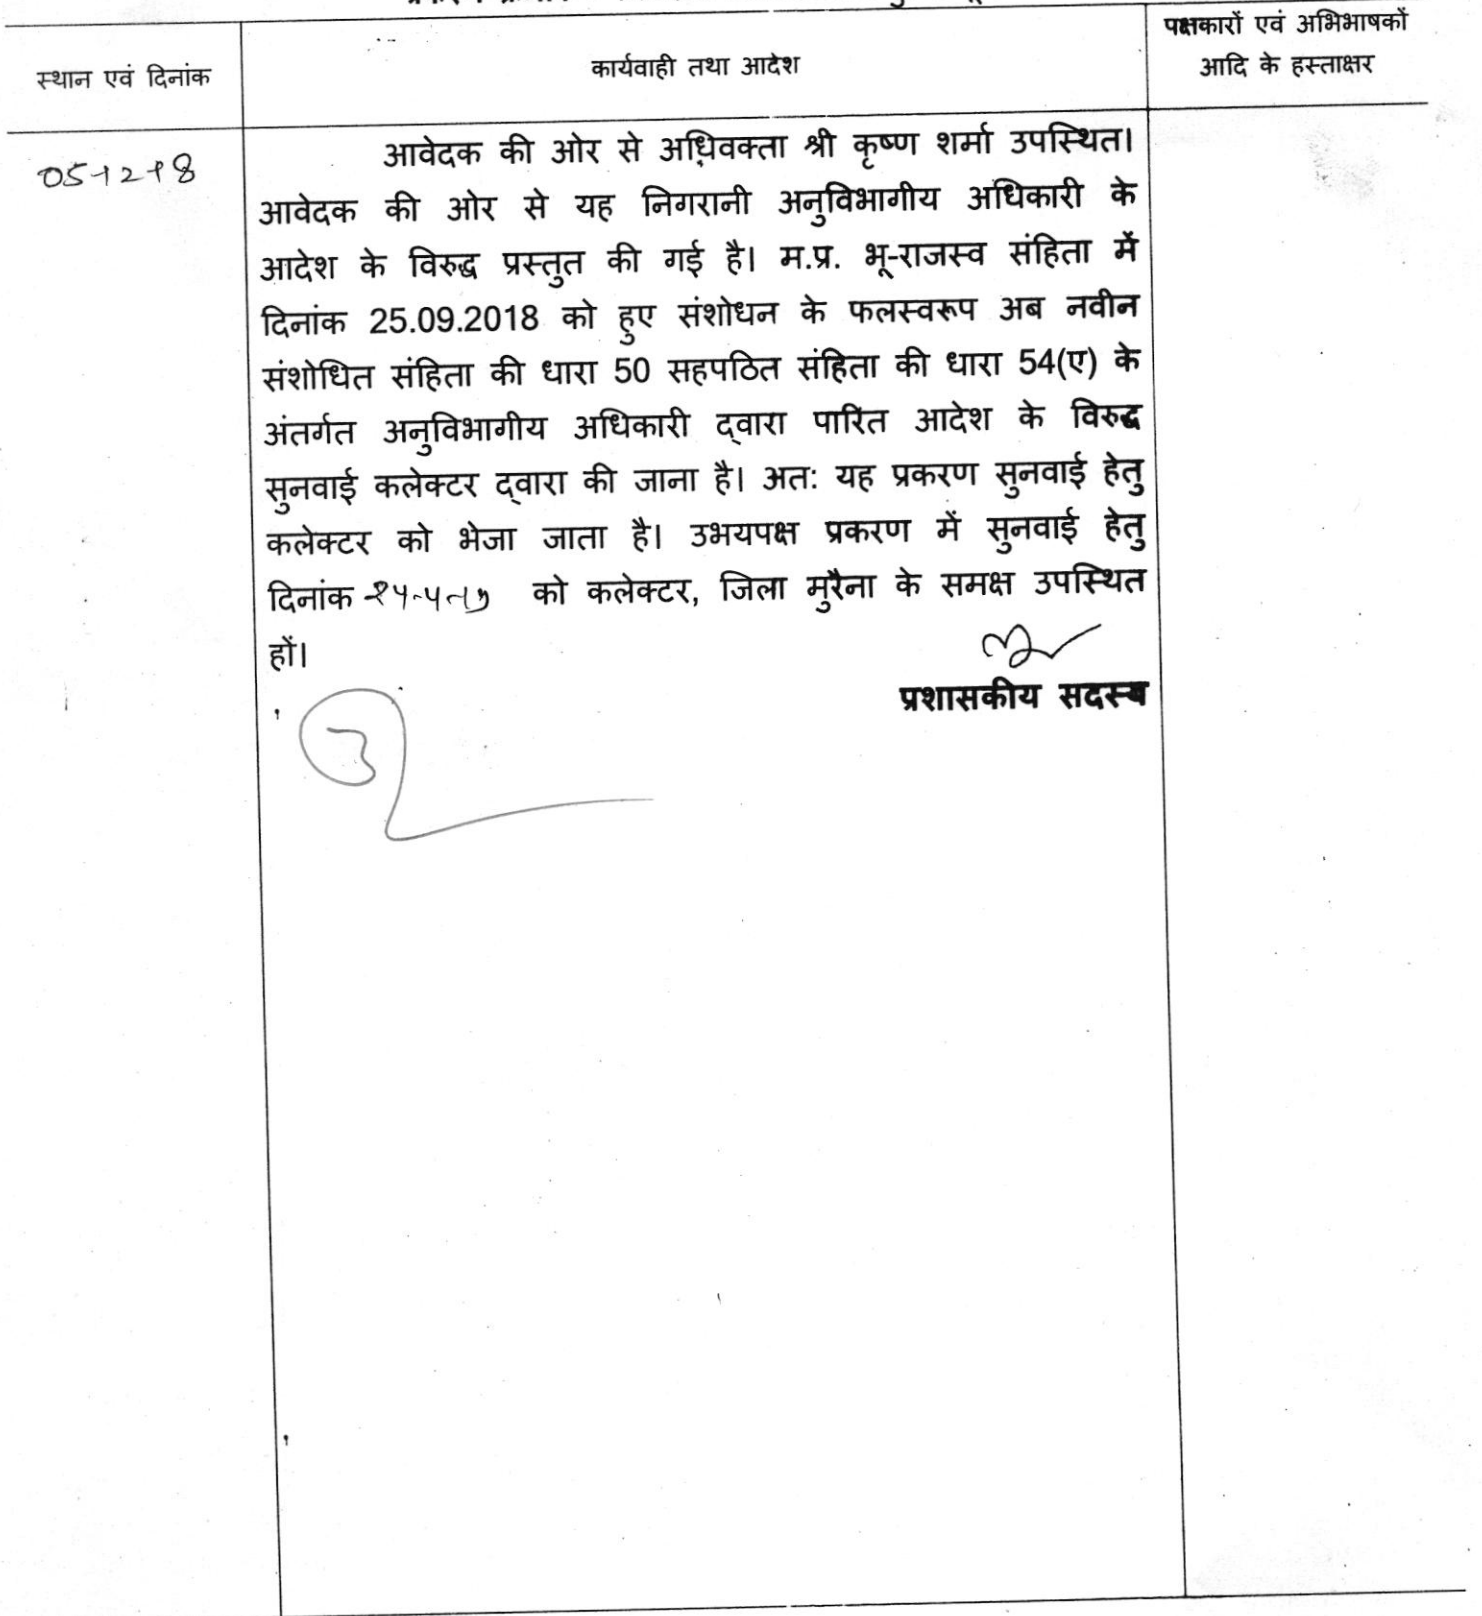 पक्षकारों एवं अभिभाषकों
स्थान एवं दिनांक
कार्यवाही तथा आदेश
आदि के हस्ताक्षर
05-12-18
आवेदक की ओर से अधिवक्ता श्री कृष्ण शर्मा उपस्थित।
आवेदक की ओर से यह निगरानी अनुविभागीय अधिकारी के
आदेश के विरुद्ध प्रस्तुत की गई है। म.प्र. भू-राजस्व संहिता में
दिनांक 25.09.2018 को हुए संशोधन के फलस्वरूप अब नवीन
संशोधित संहिता की धारा 50 सहपठित संहिता की धारा 54(ए) के
अंतर्गत अनुविभागीय अधिकारी द्वारा पारित आदेश के विरुद्ध
सुनवाई कलेक्टर द्वारा की जाना है। अतः यह प्रकरण सुनवाई हेतु
कलेक्टर को भेजा जाता है। उभयपक्ष प्रकरण में सुनवाई हेतु
दिनांक को कलेक्टर, जिला मुरैना के समक्ष उपस्थित
हों।
प्रशासकीय सदस्य